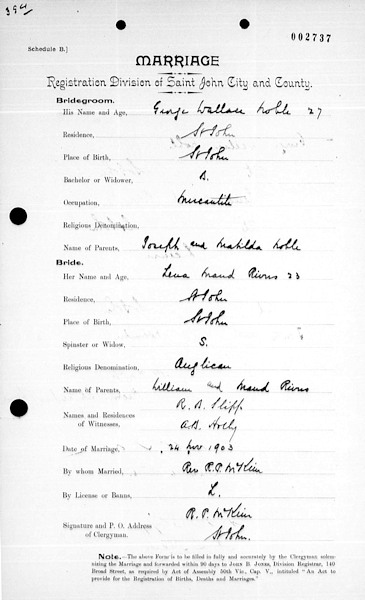 394
002737
Schedule B.]
MARRIAGE
Registration Division of Saint John City and County.
Bridegroom.
His Name and Age, George Wallace Noble 27
Residence, St John
Place of Birth, St John
Bachelor or Widower, B.
Occupation, Mercantile
Religious Denomination,
Name of Parents, Joseph and Matilda Noble
Bride.
Her Name and Age, Lena Maud Rivers 23
Residence, St John
Place of Birth, St John
Spinster or Widow, S.
Religious Denomination, Anglican
Name of Parents, William and Maud Rivers
R. B. Slipp
Names and Residences
of Witnesses, A.B. Holly
Date of Marriage, 24 Nov 1903
By whom Married, Rev R.P. McKim
By License or Banns, L.
R. P. McKim
Signature and P. O. Address
of Clergyman. St John.
Note.—The above Form is to be filled in fully and accurately by the Clergyman solemnizing the Marriage and forwarded within 90 days to John B. Jones, Division Registrar, 140
Broad Street, as required by Act of Assembly 50th Vic., Cap. V., intituled "An Act to
provide for the Registration of Births, Deaths and Marriages."